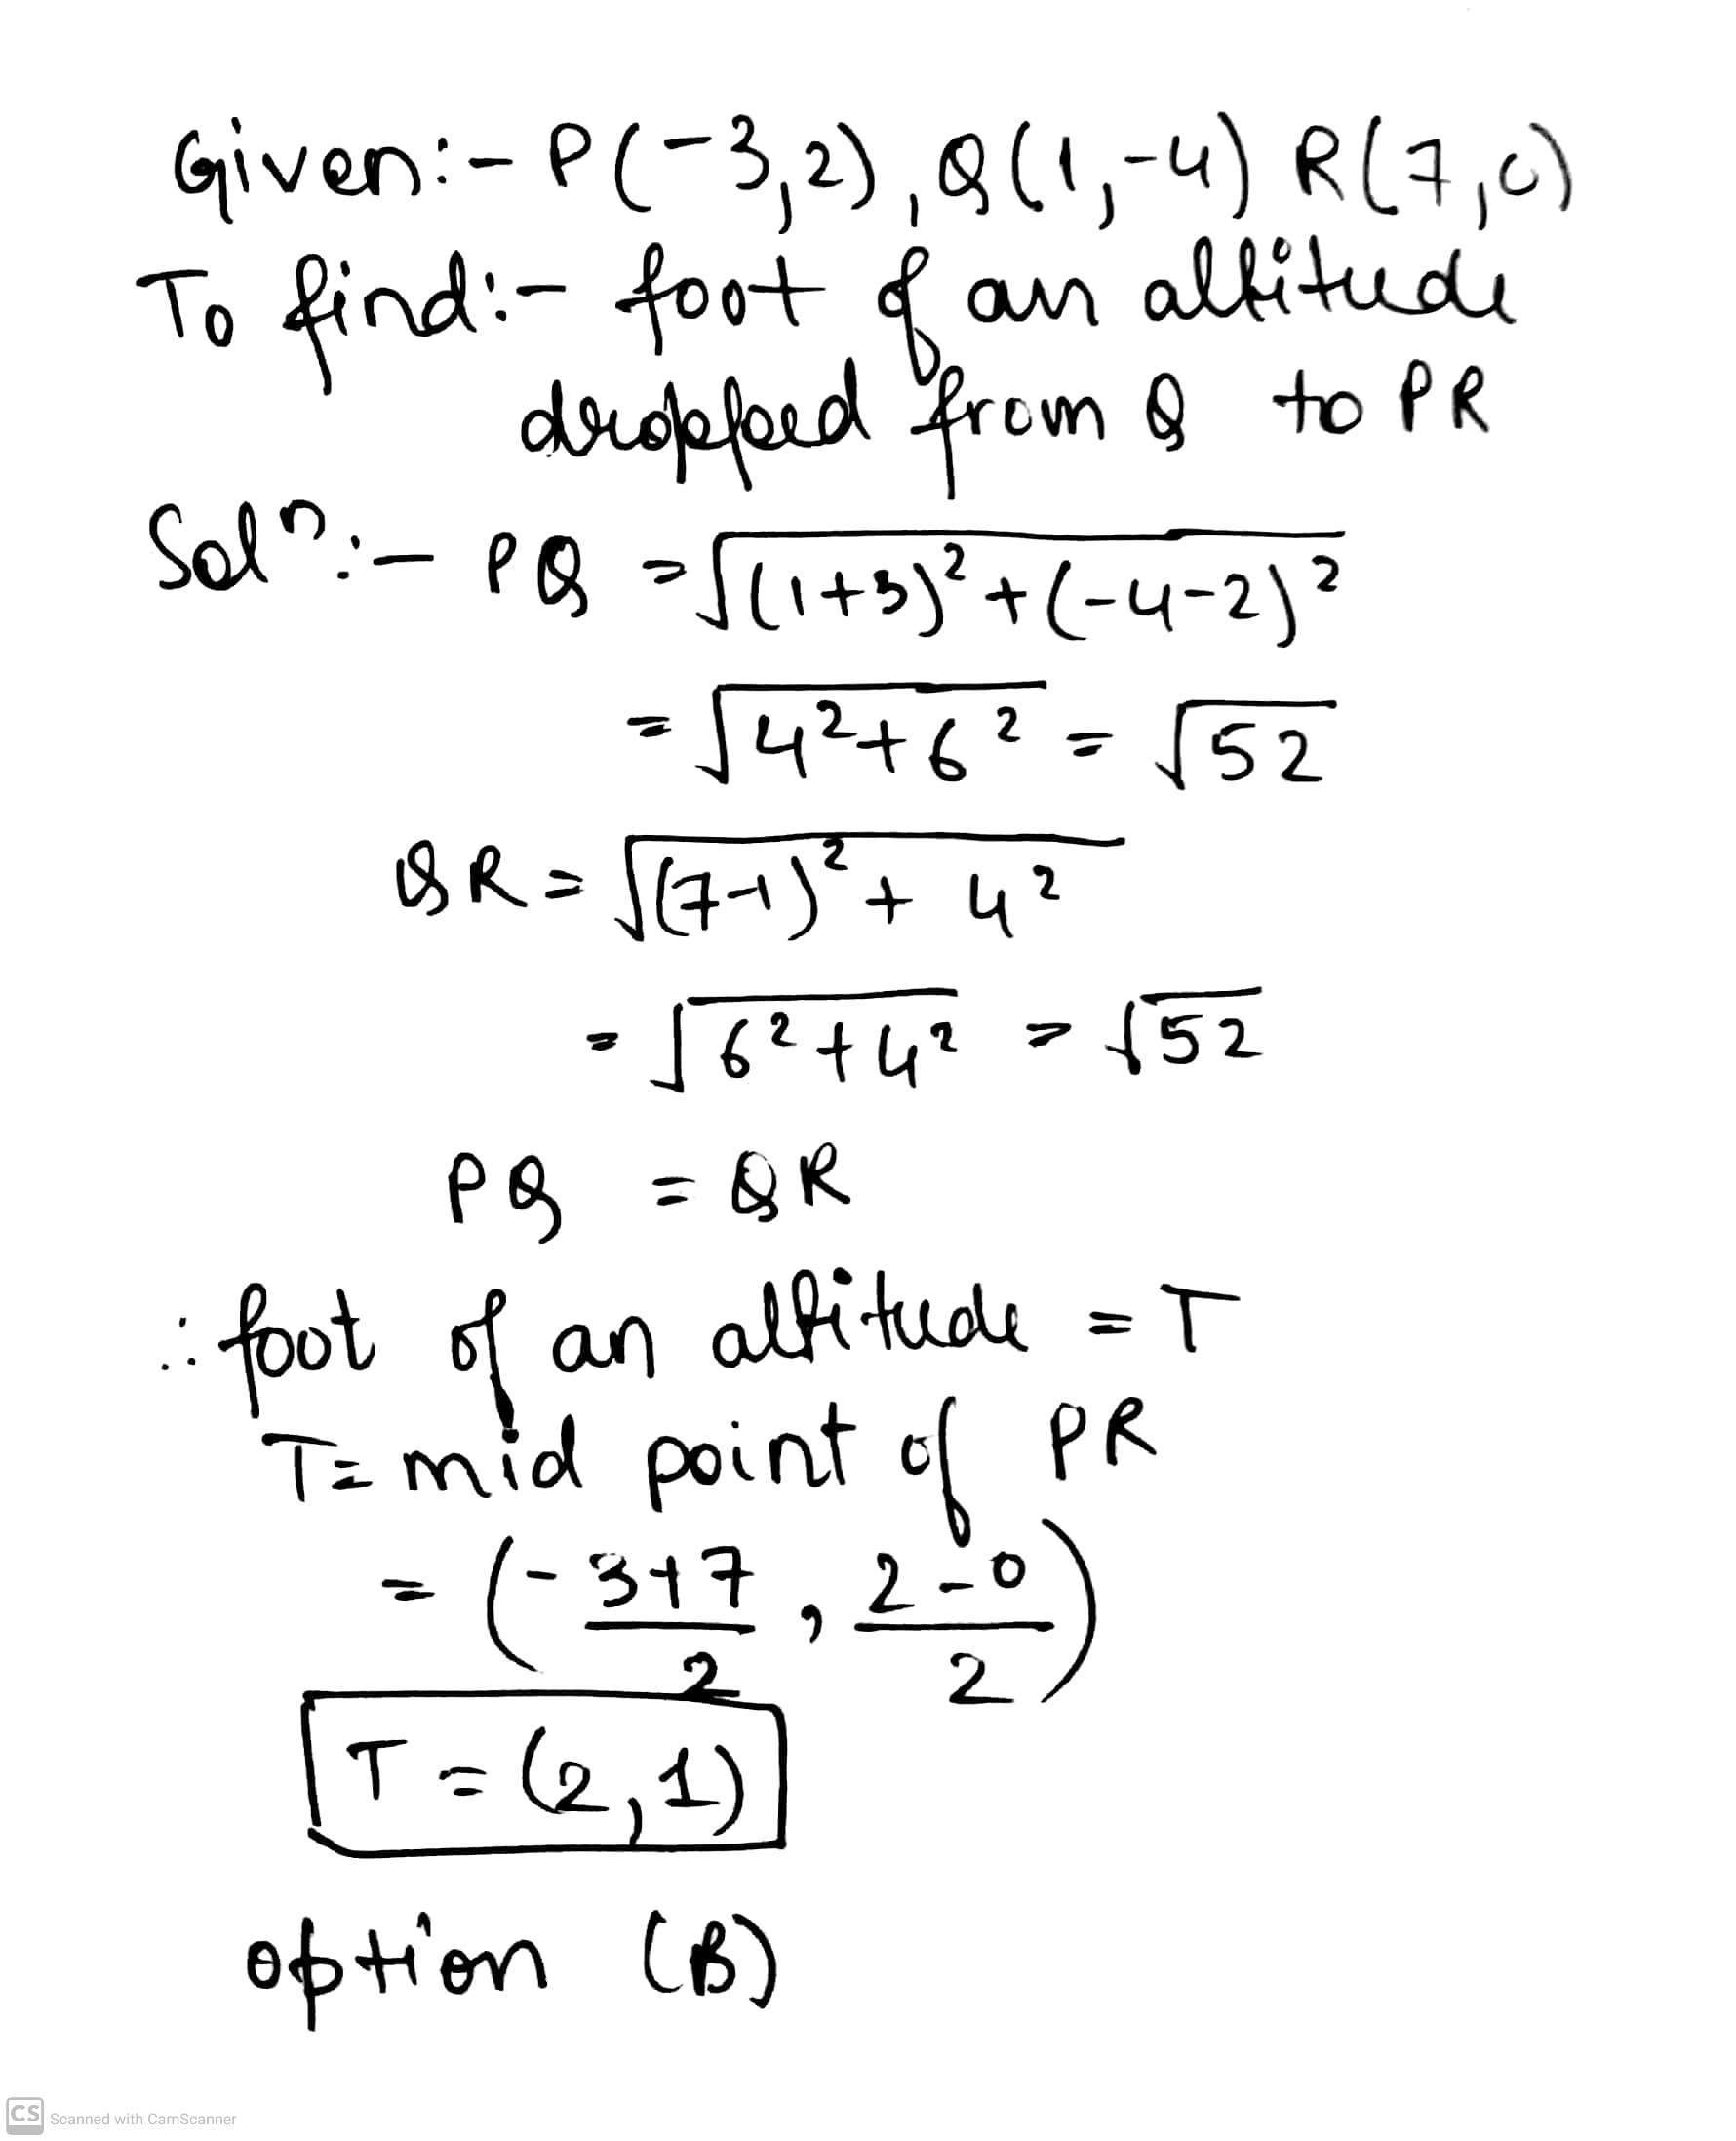 Given:- P(-3,2), Q(1,-4) R(7,0)
To find:- foot of an altitude
dropped from Q to PR
Solⁿ:- PQ = √((1+3)² + (-4-2)²)
= √(4²+6²) = √52
QR = √((7-1)² + 4²)
= √(6²+4²) = √52
PQ = QR
∴ foot of an altitude = T
T = mid point of PR
= (-3+7/2, 2-0/2)
T = (2,1)
option (B)
CS Scanned with CamScanner